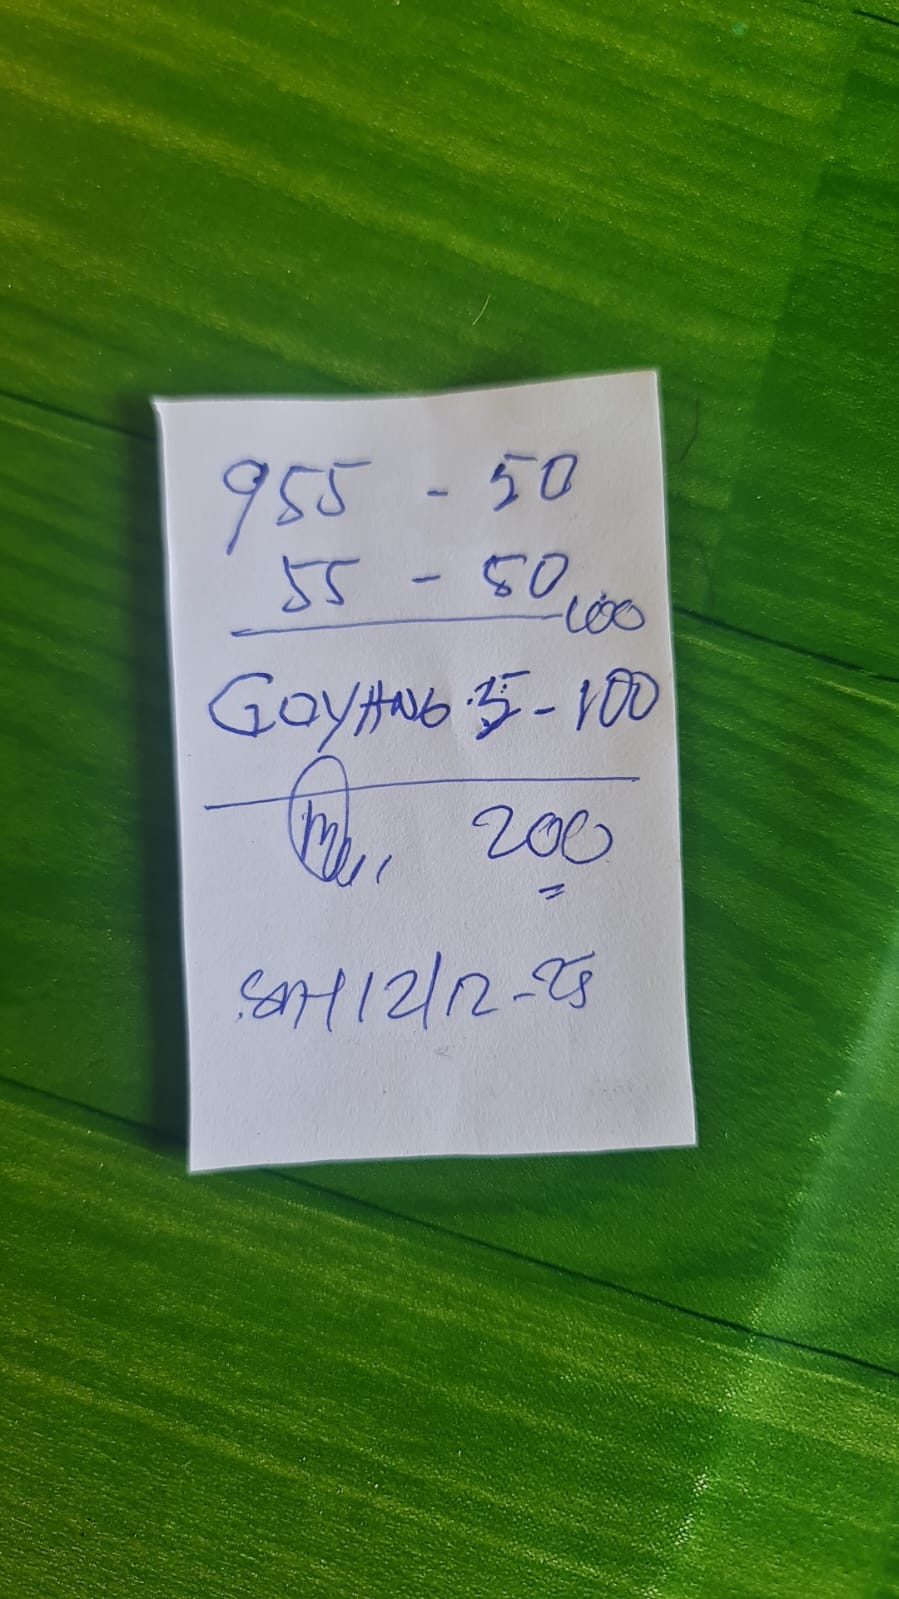 955 - 50
55 - 50
100
GOYANG 5 - 100
200
SAT 12/12-25